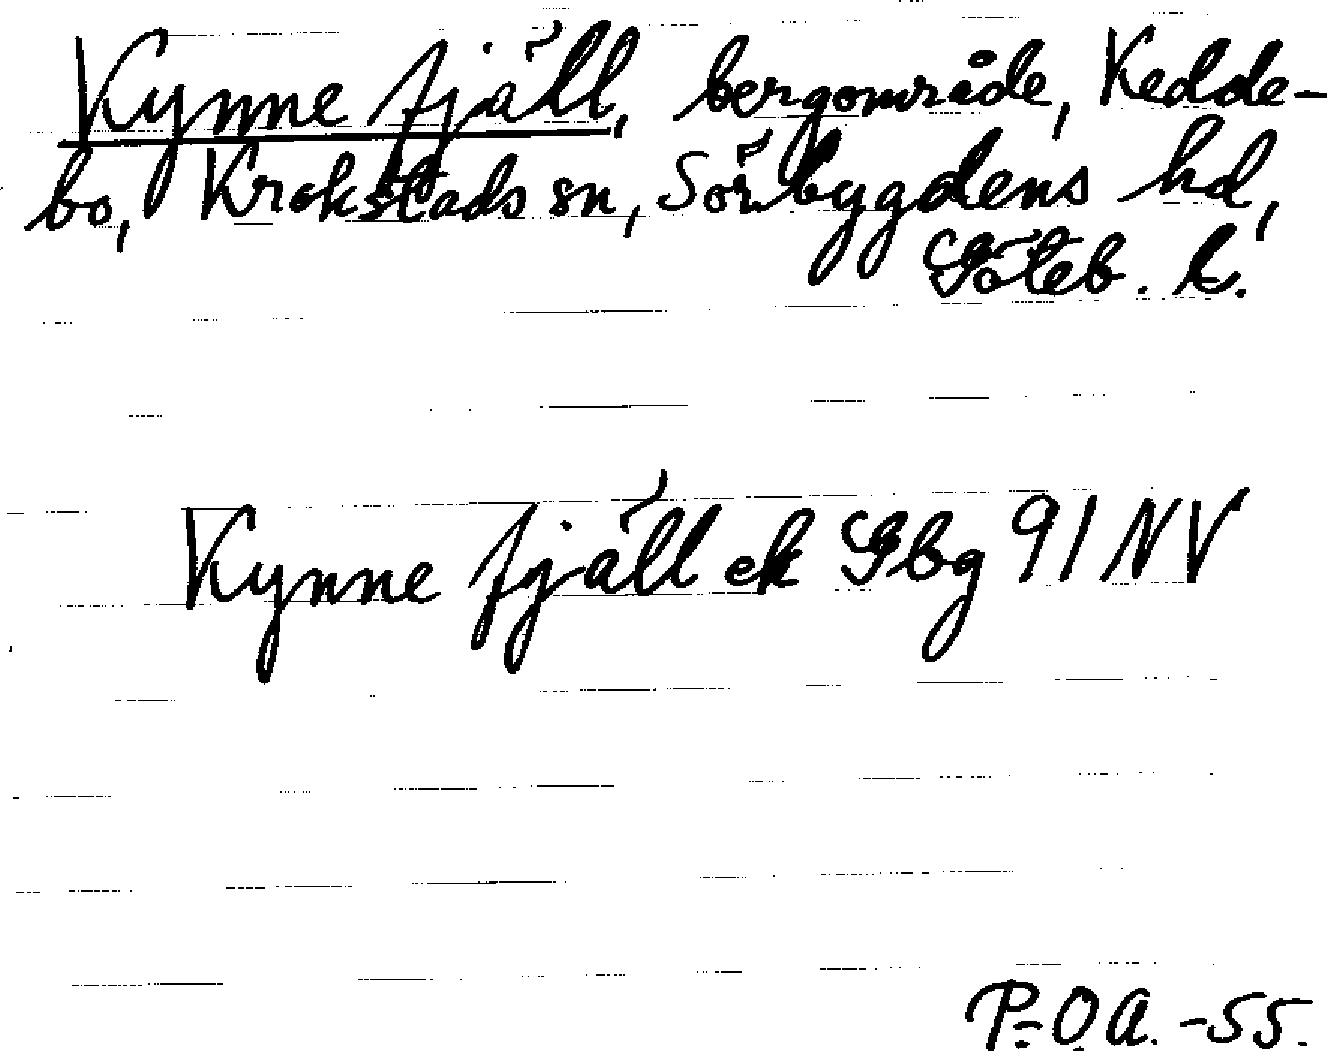 Kynne fjäll, bergområde, Kedde-
bo, Krokstads sn, Sörbygdens hd,
Göteb. l.
Kynne fjäll ek Gbg 91 NV
P.-O.A. -55.